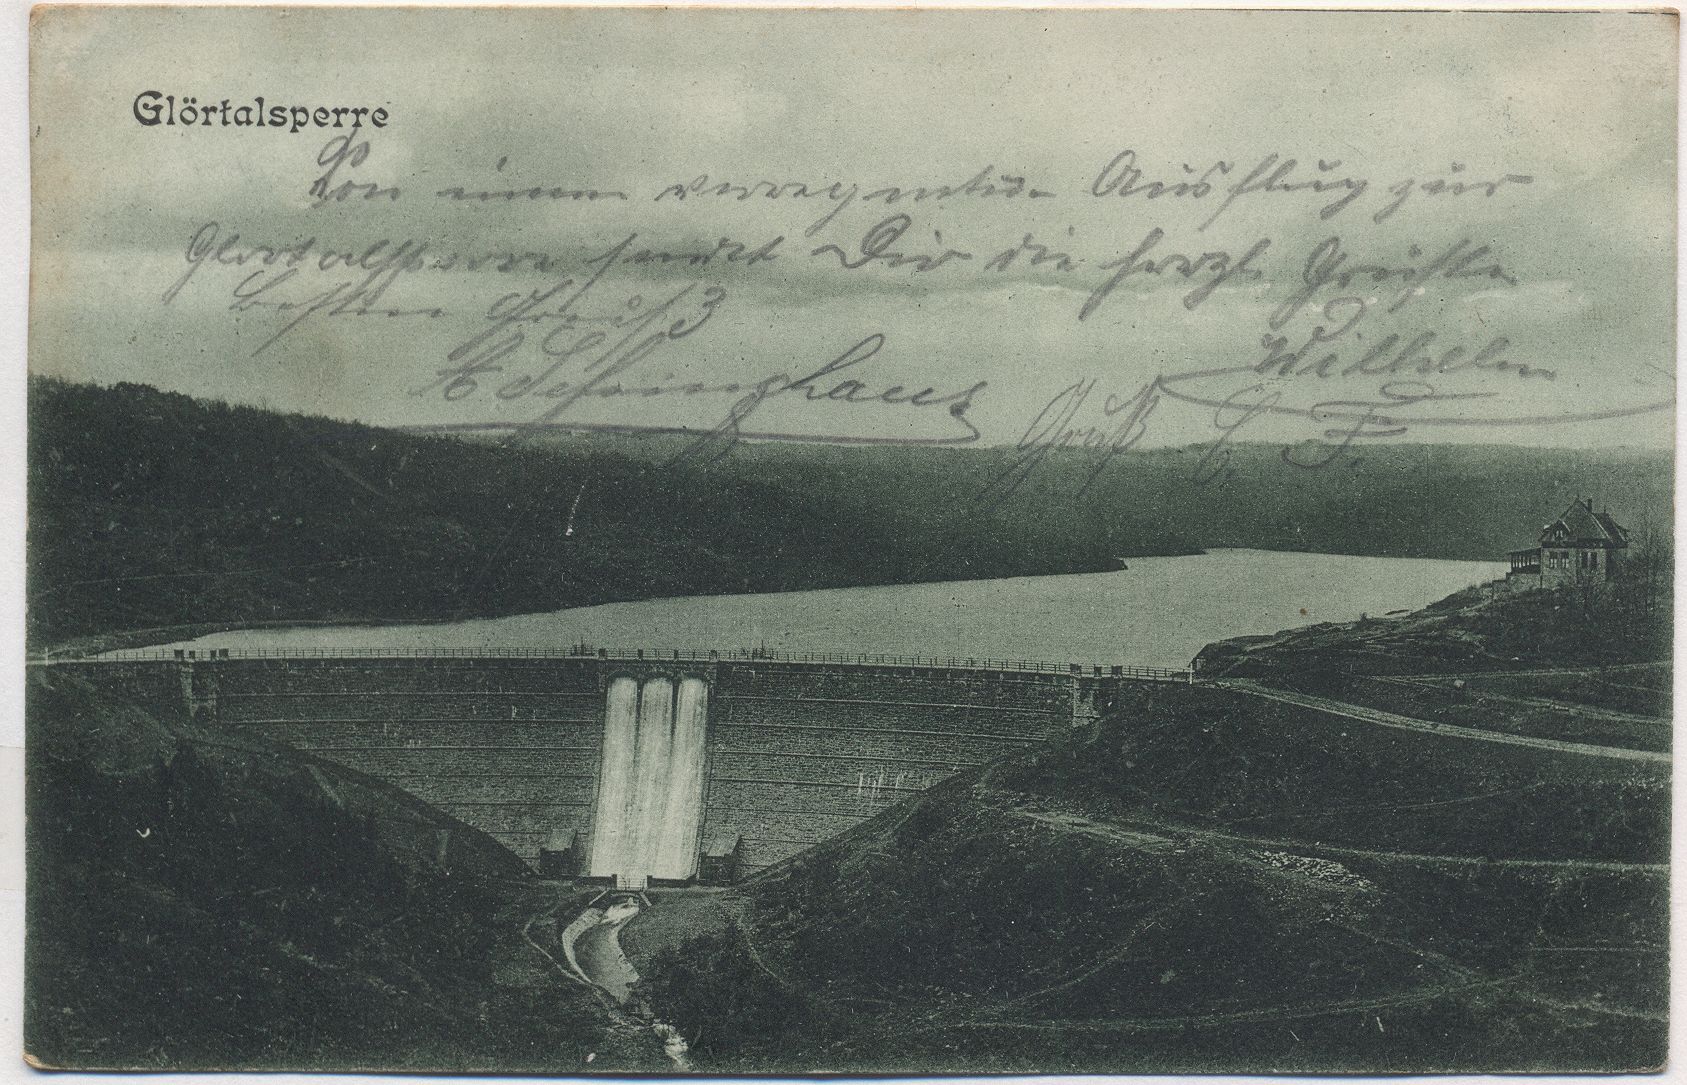 Glörtalsperre
Von einem verregneten Ausflug zur
Glörtalsperre sendet Dir die herzl. Grüße
Wilhelm
besten Gruß
Gruß E. F.